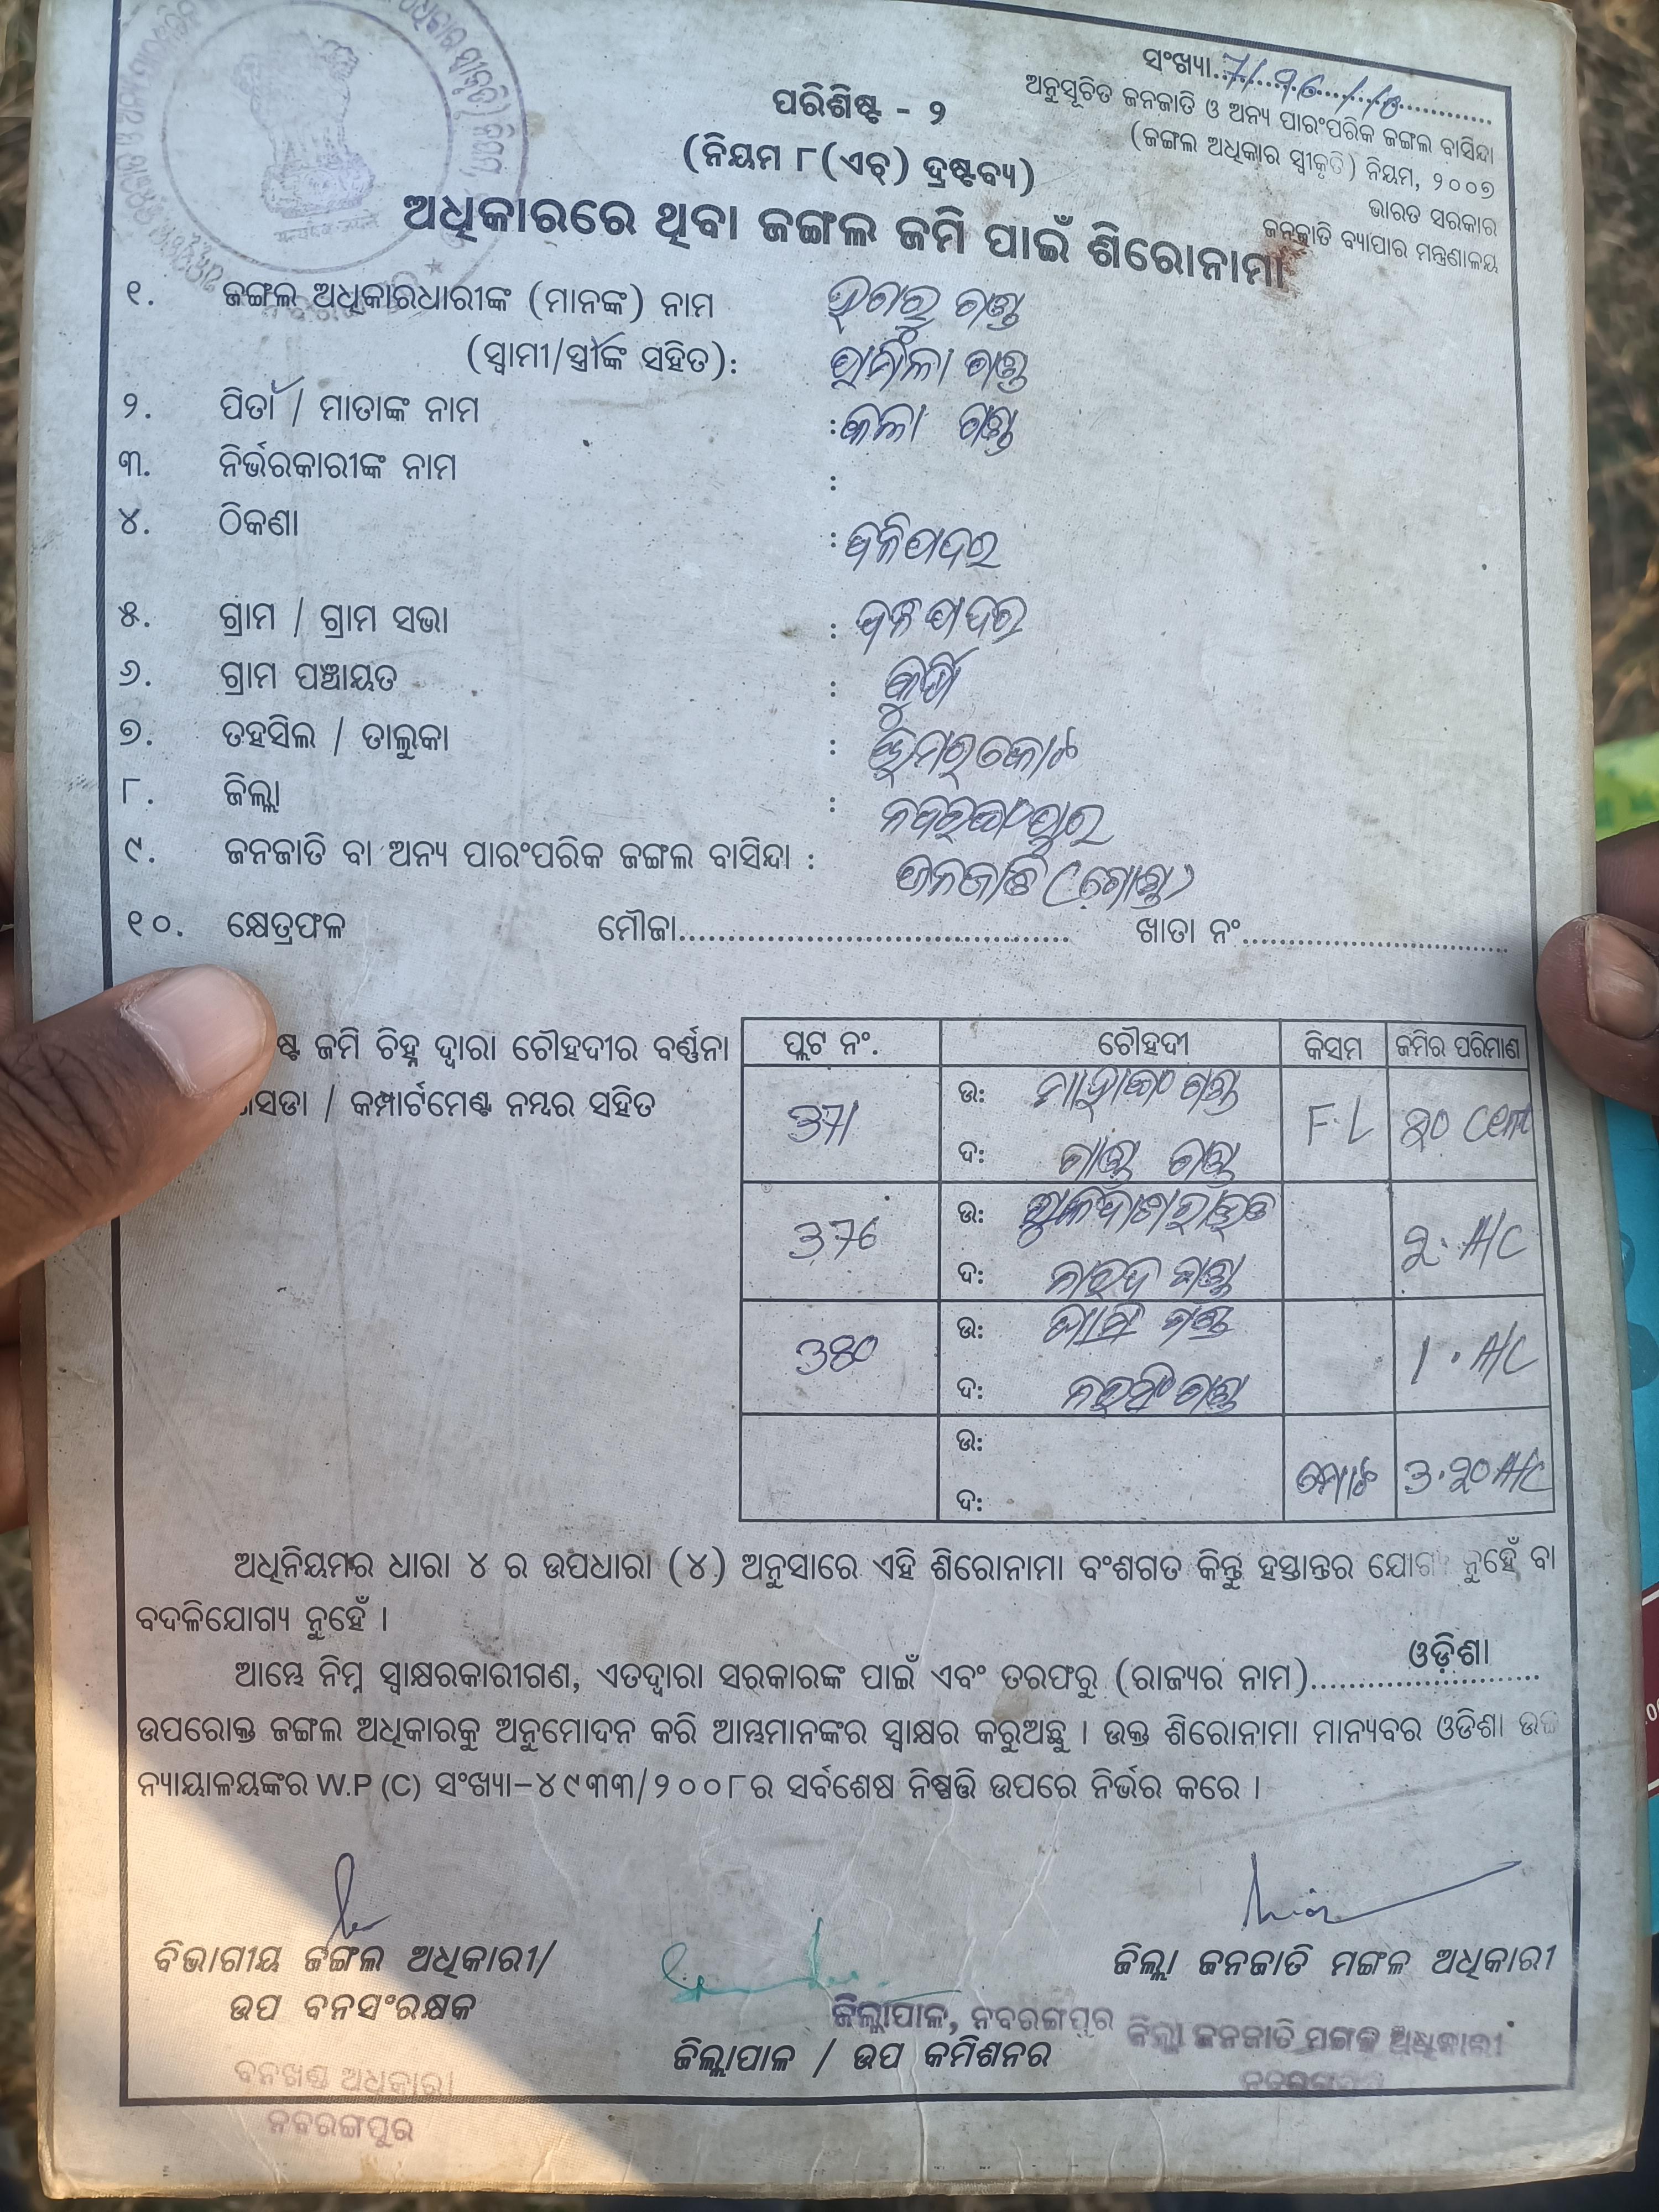 ସଂଖ୍ୟା..7/96/10
ଅନୁସୂଚିତ ଜନଜାତି ଓ ଅନ୍ୟ ପାରଂପରିକ ଜଙ୍ଗଲ ବାସିନ୍ଦା
(ଜଙ୍ଗଲ ଅଧିକାର ସ୍ୱୀକୃତି) ନିୟମ, ୨୦୦୭
ଭାରତ ସରକାର
ଜନଜାତି ବ୍ୟାପାର ମନ୍ତ୍ରଣାଳୟ
ପରିଶିଷ୍ଟ - ୨
(ନିୟମ ୮(ଏଚ୍) ଦ୍ରଷ୍ଟବ୍ୟ)
ଅଧିକାରରେ ଥିବା ଜଙ୍ଗଲ ଜମି ପାଇଁ ଶିରୋନାମା
୧. ଜଙ୍ଗଲ ଅଧିକାରଧାରୀଙ୍କ (ମାନଙ୍କ) ନାମ ଗଣ୍ଡ
(ସ୍ୱାମୀ/ସ୍ତ୍ରୀଙ୍କ ସହିତ): ପ୍ରମିଳା ଗଣ୍ଡ
୨. ପିତା / ମାତାଙ୍କ ନାମ : କଳା ଗଣ୍ଡ
୩. ନିର୍ଭରକାରୀଙ୍କ ନାମ :
୪. ଠିକଣା : ବଳିପଦର
୫. ଗ୍ରାମ / ଗ୍ରାମ ସଭା : ବଳିପଦର
୬. ଗ୍ରାମ ପଞ୍ଚାୟତ :
୭. ତହସିଲ / ତାଲୁକା : ଉମରକୋଟ
୮. ଜିଲ୍ଲା : ନବରଙ୍ଗପୁର
୯. ଜନଜାତି ବା ଅନ୍ୟ ପାରଂପରିକ ଜଙ୍ଗଲ ବାସିନ୍ଦା : ଜନଜାତି (ଗୋଣ୍ଡ)
୧୦. କ୍ଷେତ୍ରଫଳ ମୌଜା........ ଖାତା ନଂ........
ଷ୍ଟ ଜମି ଚିହ୍ନ ଦ୍ୱାରା ଚୌହଦୀର ବର୍ଣ୍ଣନା
ସଡା / କମ୍ପାର୍ଟମେଣ୍ଟ ନମ୍ବର ସହିତ
ପ୍ଲଟ ନଂ. ଚୌହଦୀ କିସମ ଜମିର ପରିମାଣ
371 ଉ: ଗଣ୍ଡ F.L ୨୦ Cent
ଦ: ଗଣ୍ଡ
376 ଉ: ୨. A/C
ଦ: ନାରଦ ଗଣ୍ଡ
380 ଉ: ଗଣ୍ଡ 1. A/C
ଦ: ନରସିଂ ଗଣ୍ଡ
ଉ:
ଦ: ମୋଟ 3.୨୦ A/C
ଅଧିନିୟମର ଧାରା ୪ ର ଉପଧାରା (୪) ଅନୁସାରେ ଏହି ଶିରୋନାମା ବଂଶଗତ କିନ୍ତୁ ହସ୍ତାନ୍ତର ଯୋଗ୍ୟ ନୁହେଁ ବା
ବଦଳିଯୋଗ୍ୟ ନୁହେଁ ।
ଆମ୍ଭେ ନିମ୍ନ ସ୍ୱାକ୍ଷରକାରୀଗଣ, ଏତଦ୍ୱାରା ସରକାରଙ୍କ ପାଇଁ ଏବଂ ତରଫରୁ (ରାଜ୍ୟର ନାମ)....ଓଡ଼ିଶା....
ଉପରୋକ୍ତ ଜଙ୍ଗଲ ଅଧିକାରକୁ ଅନୁମୋଦନ କରି ଆମ୍ଭମାନଙ୍କର ସ୍ୱାକ୍ଷର କରୁଅଛୁ । ଉକ୍ତ ଶିରୋନାମା ମାନ୍ୟବର ଓଡିଶା ଉଚ୍ଚ
ନ୍ୟାୟାଳୟଙ୍କର W.P (C) ସଂଖ୍ୟା-୪୯୩୩/୨୦୦୮ର ସର୍ବଶେଷ ନିଷ୍ପତ୍ତି ଉପରେ ନିର୍ଭର କରେ ।
ବିଭାଗୀୟ ଜଙ୍ଗଲ ଅଧିକାରୀ/
ଉପ ବନସଂରକ୍ଷକ
ବନଖଣ୍ଡ ଅଧିକାରୀ
ନବରଙ୍ଗପୁର
ଜିଲ୍ଲାପାଳ, ନବରଙ୍ଗପୁର
ଜିଲ୍ଲାପାଳ / ଉପ କମିଶନର
ଜିଲ୍ଲା ଜନଜାତି ମଙ୍ଗଳ ଅଧିକାରୀ
ଜିଲ୍ଲା ଜନଜାତି ମଙ୍ଗଳ ଅଧିକାରୀ
ନବରଙ୍ଗପୁର